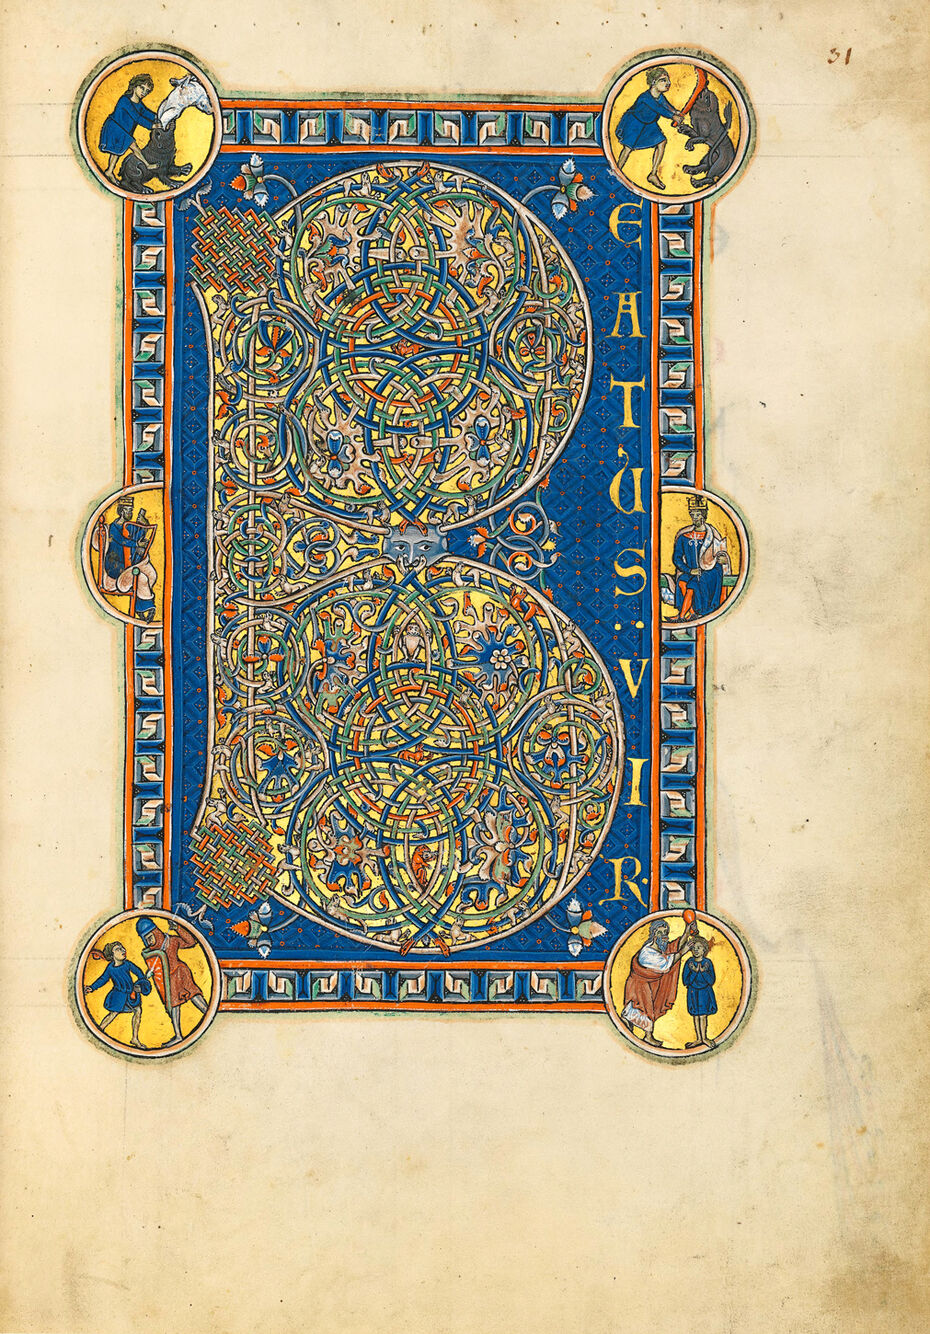 31
B
EATUS : VIR